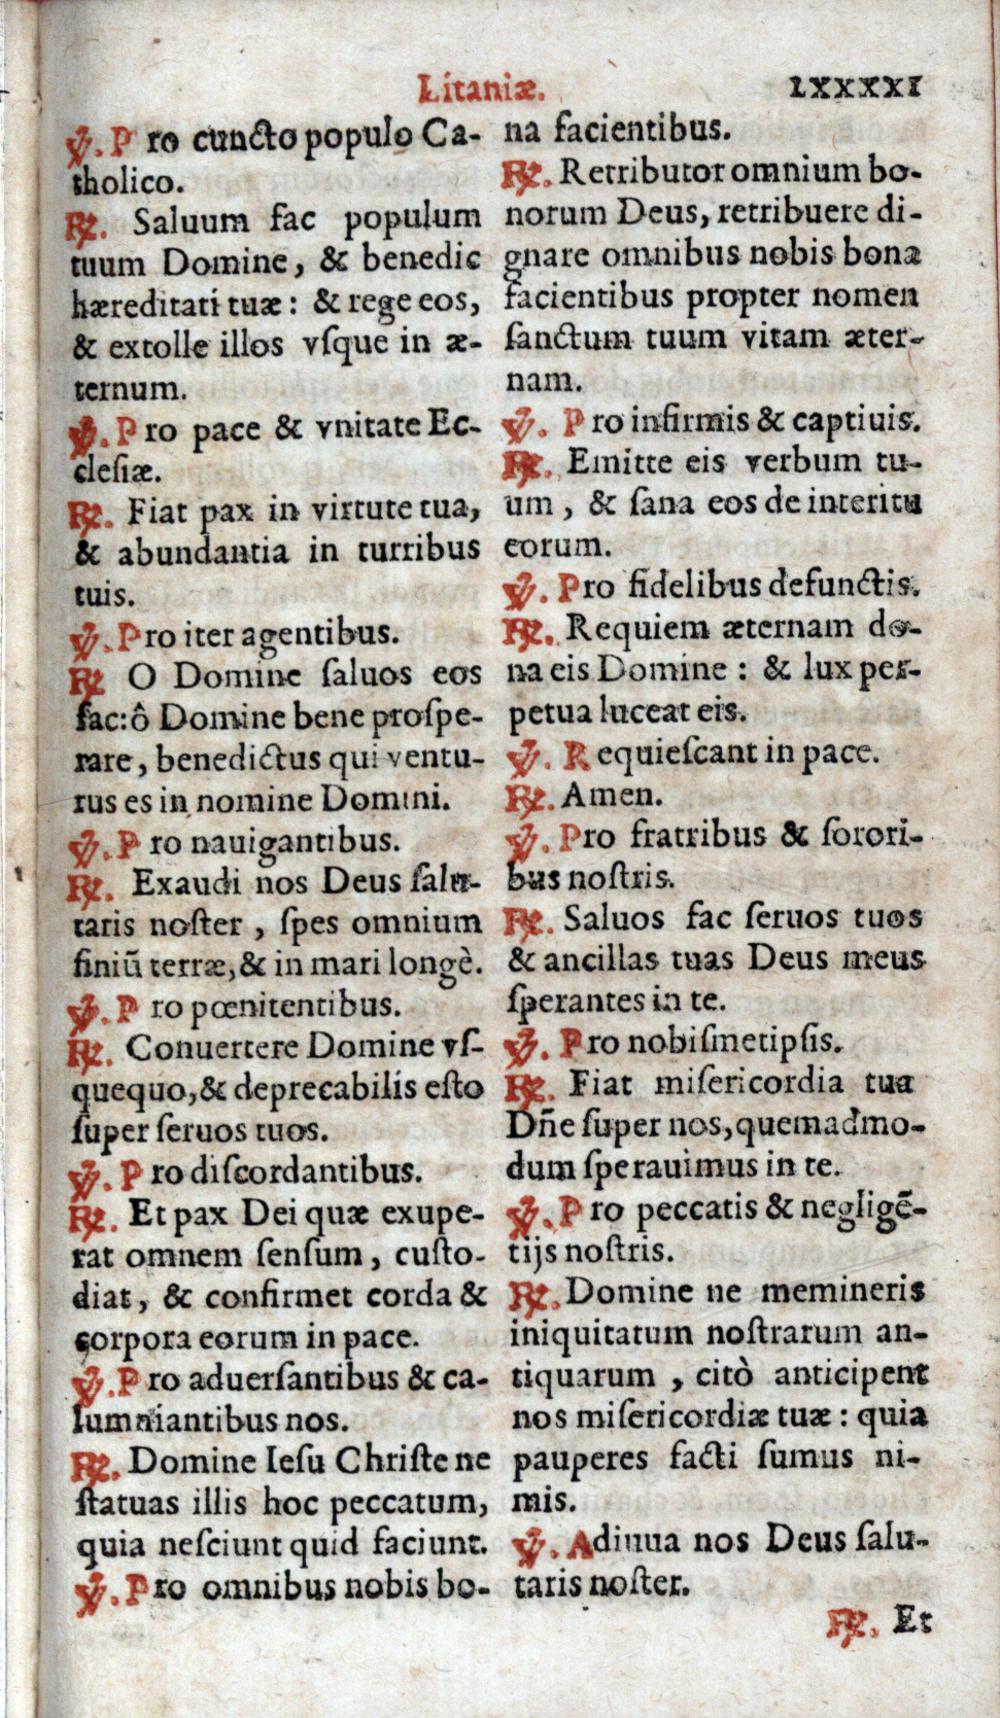 Litaniæ. LXXXXI
℣. Pro cuncto populo Ca-
tholico.
℟. Saluum fac populum
tuum Domine, & benedic
hæreditati tuæ: & rege eos,
& extolle illos vſque in æ-
ternum.
℣. Pro pace & vnitate Ec-
cleſiæ.
℟. Fiat pax in virtute tua,
& abundantia in turribus
tuis.
℣. Pro iter agentibus.
℟ O Domine ſaluos eos
fac: ô Domine bene proſpe-
rare, benedictus qui ventu-
rus es in nomine Domini.
℣. Pro nauigantibus.
℟. Exaudi nos Deus ſalu-
taris noſter, ſpes omnium
finiũ terræ, & in mari longè.
℣. Pro pœnitentibus.
℟. Conuertere Domine vſ-
quequo, & deprecabilis eſto
ſuper ſeruos tuos.
℣. Pro diſcordantibus.
℟. Et pax Dei quæ exupe-
rat omnem ſenſum, cuſto-
diat, & confirmet corda &
corpora eorum in pace.
℣. Pro aduerſantibus & ca-
lumniantibus nos.
℟. Domine Ieſu Chriſte ne
ſtatuas illis hoc peccatum,
quia neſciunt quid faciunt.
℣. Pro omnibus nobis bo-
na facientibus.
℟. Retributor omnium bo-
norum Deus, retribuere di-
gnare omnibus nobis bona
facientibus propter nomen
ſanctum tuum vitam æter-
nam.
℣. Pro infirmis & captiuis.
℟. Emitte eis verbum tu-
um, & ſana eos de interitu
eorum.
℣. Pro fidelibus defunctis.
℟. Requiem æternam do-
na eis Domine: & lux per-
petua luceat eis.
℣. Requieſcant in pace.
℟. Amen.
℣. Pro fratribus & ſorori-
bus noſtris.
℟. Saluos fac ſeruos tuos
& ancillas tuas Deus meus
ſperantes in te.
℣. Pro nobiſmetipſis.
℟. Fiat miſericordia tua
Dñe ſuper nos, quemadmo-
dum ſperauimus in te.
℣. Pro peccatis & negligẽ-
tijs noſtris.
℟. Domine ne memineris
iniquitatum noſtrarum an-
tiquarum, citò anticipent
nos miſericordiæ tuæ: quia
pauperes facti ſumus ni-
mis.
℣. Adiuua nos Deus ſalu-
taris noſter.
℟. Et